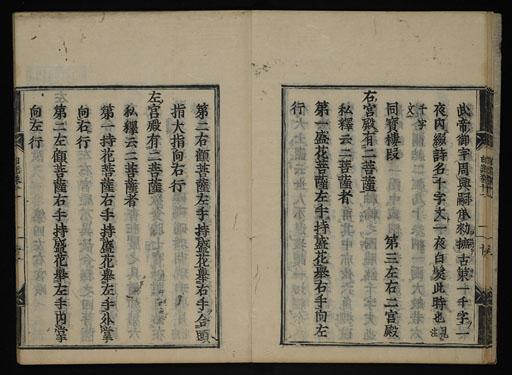 此帝御宇周興嗣奉勅撫古第一千字一
夜內綴詩名千字文一夜白髮此時也
同寶樓段 第三左右二宮殿
右宮殿有二菩薩
私釋云二菩薩者
第一盛花菩薩左手持盛花擧右手向左
行
第二右顧菩薩左手持盛花擧右手合頭
指大指向右行
左宮殿有二菩薩
私釋云二菩薩者
第一持花菩薩右手持盛花擧左手外掌
向右行
第二左顧菩薩右手持盛花擧左手內掌
向左行